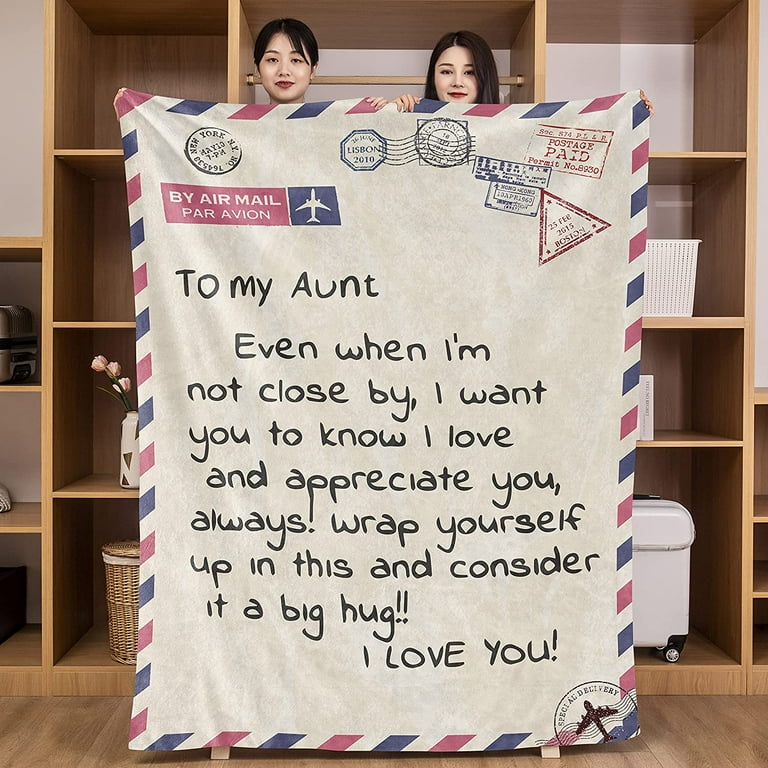 NEW YORK N.Y.
MAY 13
LISBON
2010
Sec. 574 P.L & R
POSTAGE
PAID
Permit No.8930
HONG KONG
13APR1963
25 FEB
2015
BOSTON
BY AIR MAIL
PAR AVION
TO my Aunt
Even when I'm
not close by, I want
you to know I love
and appreciate you,
always! wrap yourself
up in this and consider
it a big hug!!
I LOVE YOU!
SPECIAL DELIVERY